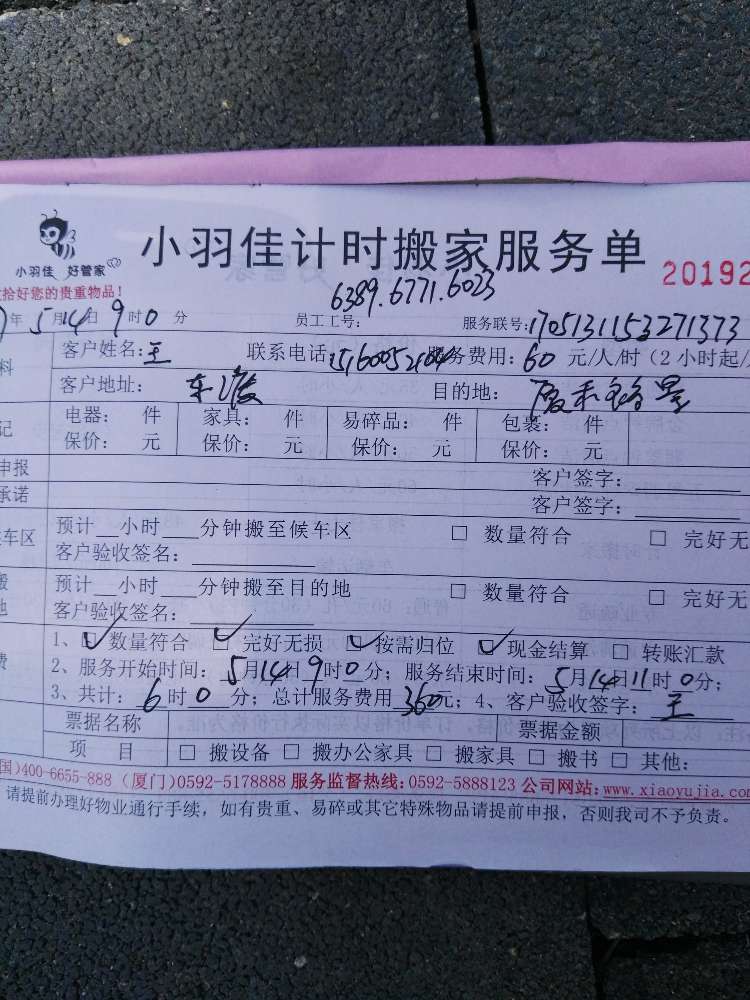 小羽佳计时搬家服务单
小羽佳 好管家
20192
拾好您的贵重物品！
6389.6771.6023
年 5月14日 9时0分 员工工号： 服务联号：1705131153271373
客户姓名：王 联系电话： 服务费用：60 元/人/时（2小时起/
客户地址： 目的地：
电器： 件 家具： 件 易碎品： 件 包裹： 件
保价： 元 保价： 元 保价： 元 保价： 元
申报 客户签字：
承诺 客户签字：
车区 预计 小时 分钟搬至候车区 □ 数量符合 □ 完好无
客户验收签名：
预计 小时 分钟搬至目的地 □ 数量符合 □ 完好无
客户验收签名：
1、☑ 数量符合 ☑ 完好无损 ☑ 按需归位 ☑ 现金结算 □ 转账汇款
2、服务开始时间：5月14日9时0分；服务结束时间：5月14日11时0分；
3、共计：6时0分；总计服务费用360元；4、客户验收签字：王
票据名称 票据金额
项 目 □ 搬设备 □ 搬办公家具 □ 搬家具 □ 搬书 □ 其他：
国)400-6655-888 (厦门)0592-5178888 服务监督热线：0592-5888123 公司网站：www.xiaoyujia.com
请提前办理好物业通行手续，如有贵重、易碎或其它特殊物品请提前申报，否则我司不予负责。